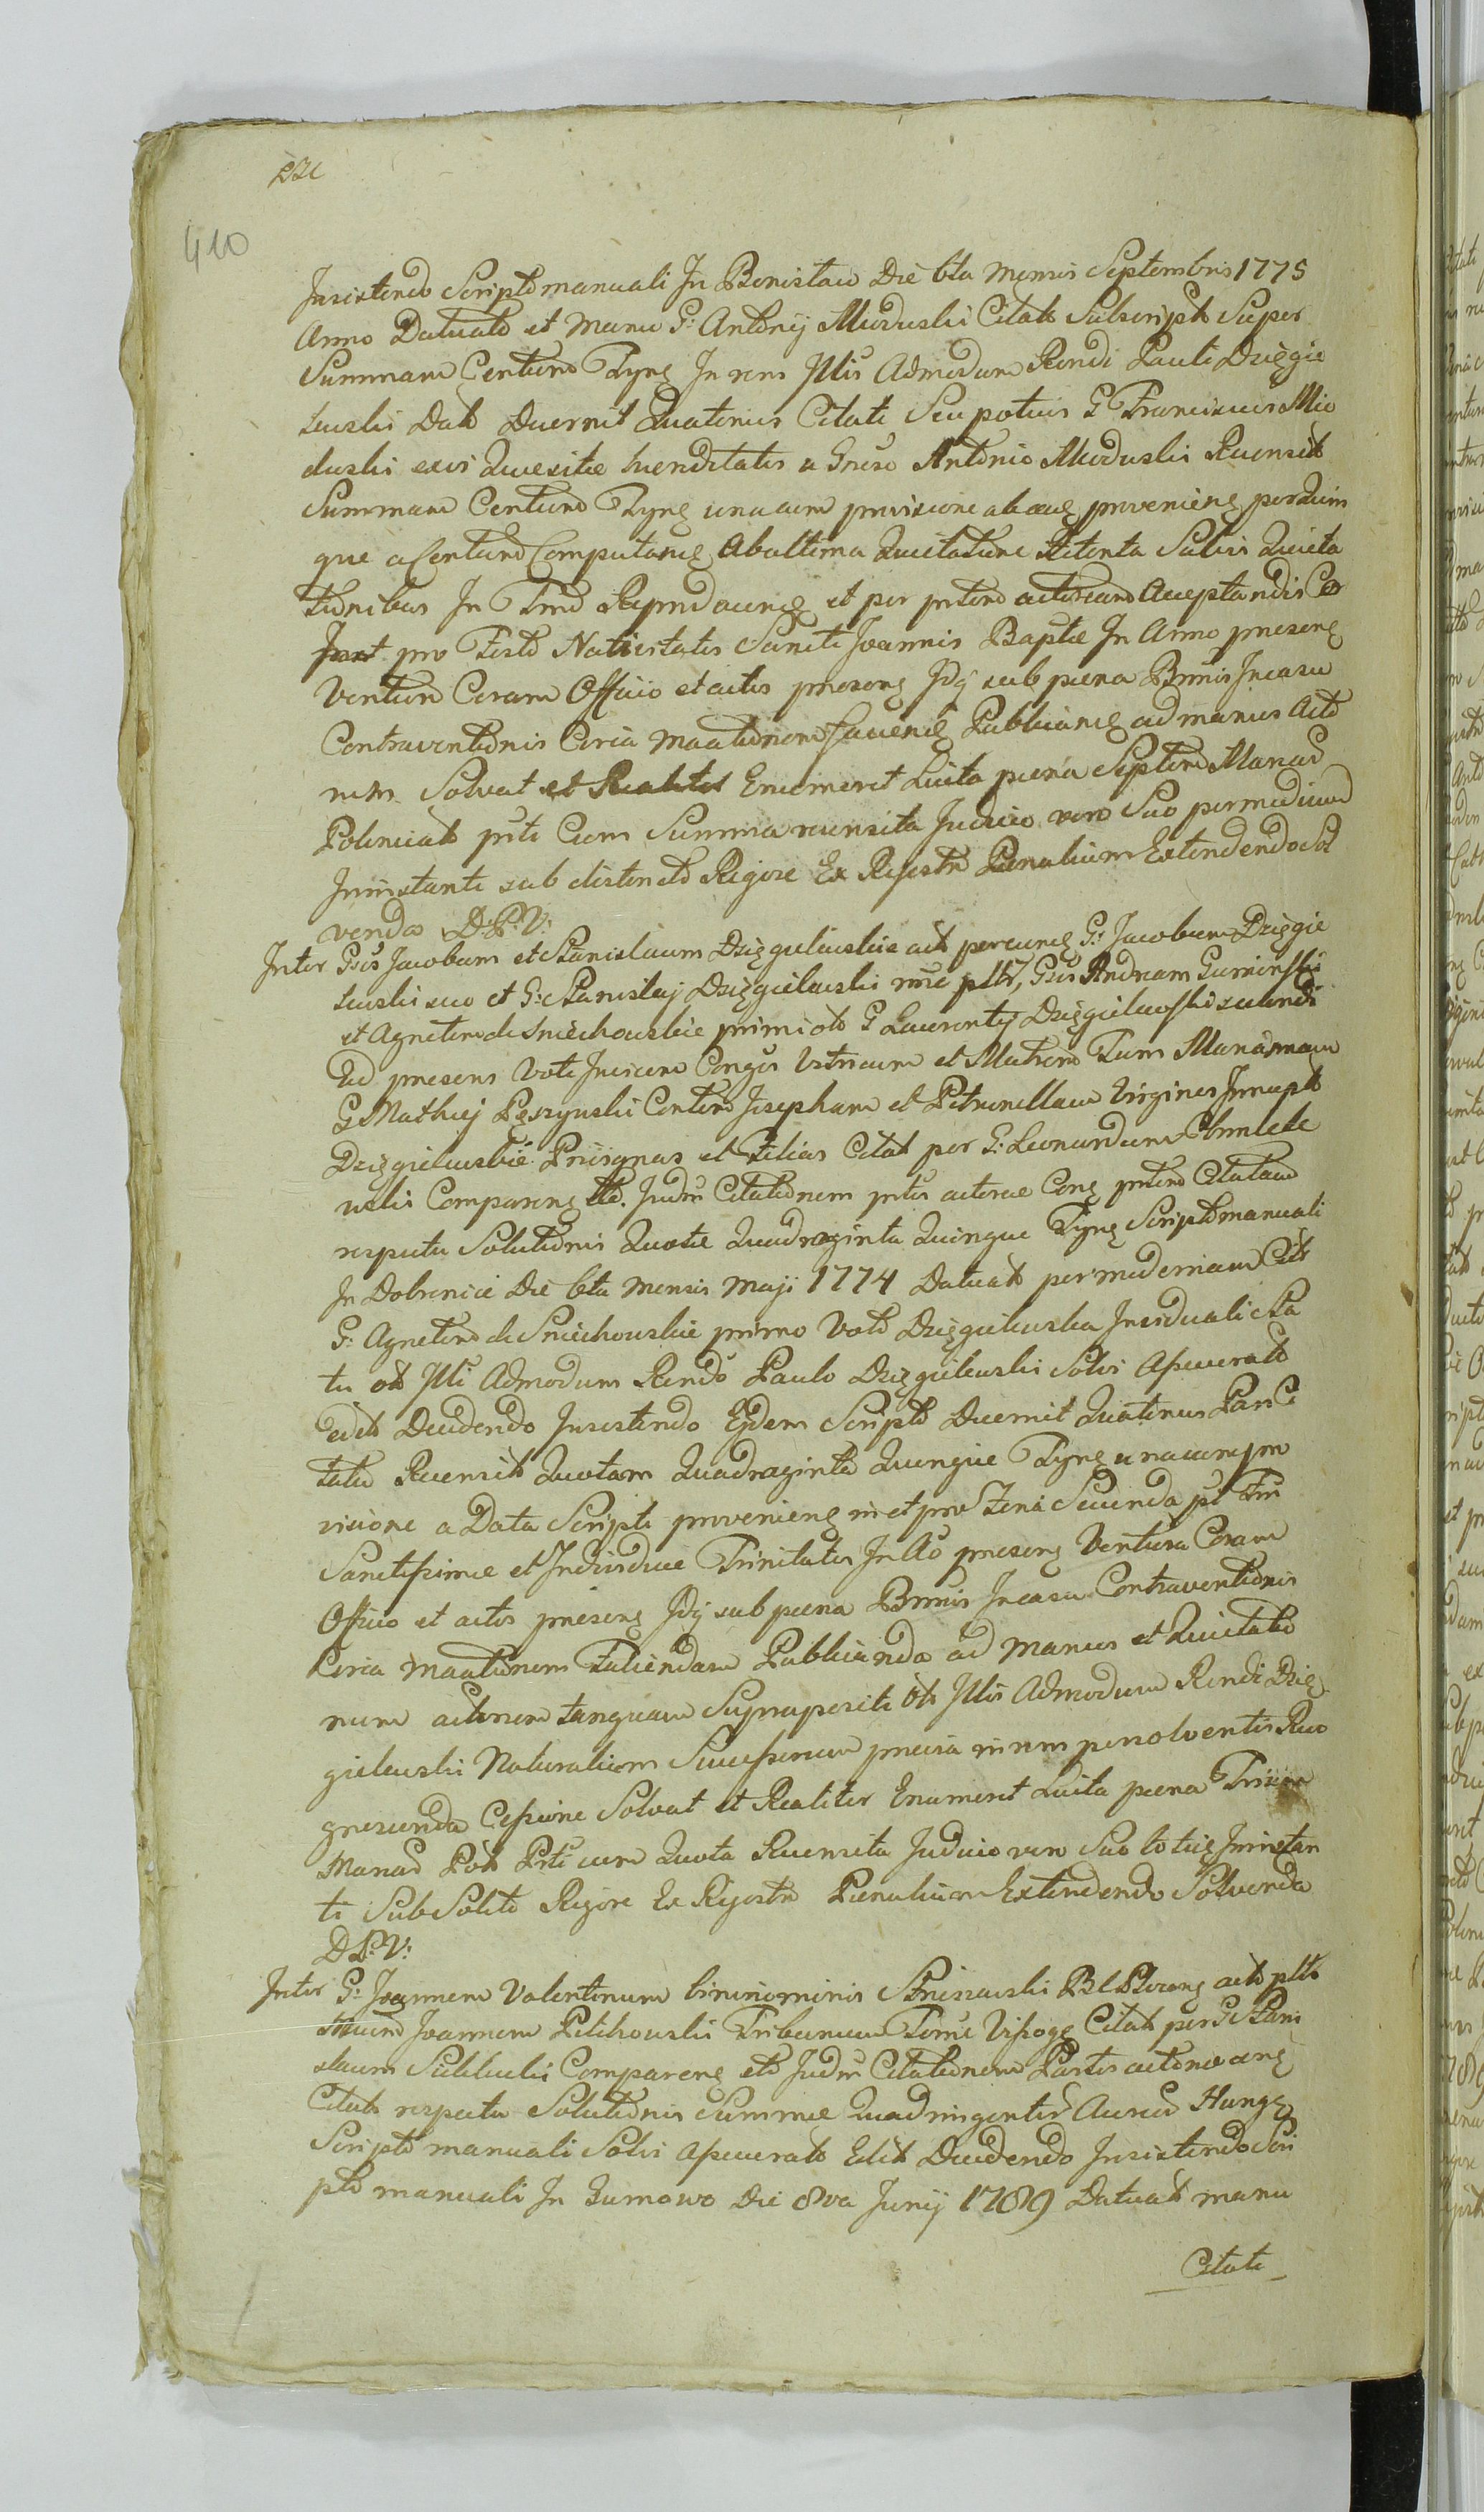 410
Insistendo Scripto manuali In Bonislaw Die 6ta Mensis Septembris 1775
Anno Datuato et Manu G: Antonij Mioduski Citati Subscripto Super
Summam Centum Tynf In rem Illis Admodum Rendi Pauli Dzięgie
lewski Dato Decernit Quatenus Citati Seu potius G Franciscus Mio
duski exvi Quaesitae haereditatis a Gnrso Antonio Mioduski Recensit
Summam Centum Tynf unacum provisione abeaq provenieng perquin
que a Centum Computang Abultima Quietatione Retenta Salvis Quieta
tionibus In Tmo Reproducung et per partem actoream Acceptandis Co
pro Festo Nativitatis Sancti Joannis Baptae In Anno praeseng
Venturo Coram Officio et actis praeseng Idq sub paena Bnnis Incasu
Contraventionis Circa Maationem faciend Publicand ad manus Acto
rum Solvat et Realiter Enumeret Luita paena Septem Marcas
Polonicales parti Cum Summa recensita Judicio vero Suo permedium
Inninstanti sub districto Rigore Ex Regestro Paenalium Extendendo Sol
venda D:P:V:
Inter Gsos Jacobum et Stanislaum Dzięgielewskie act percung G: Jacobum Dzięgie
lewski suo et G: Stanislaj Dzięgielewski nne pltt, Gsos Andream Guminski
et Agnetem de Sniechowskie primi olt G Laurentij Dzięgielewski secundi
Ad praesens Voti Invicem Conges Vitricum et Matrem Tum
G Mathiej Pęszynski Contem Josepham et Petronellam Virgines Innupt
Dzięgielewskie Privignas et Filias Citat per G: Leonardum Chmiele
wski Compareng Itto. Judm Citationem partis actoreae Cong partem Citatam
respectu Solutionis Quotae Quadraginta Quinque Tynf Scripto manuali
In Dobrenice Die 6ta Mensis Maji 1774 Datuato per modernam Cit
G: Agnetem de Sniechowskie primo Voto Dzięgielewska Inviduali Sta
tu olt Illi Admodum Rendo Paulo Dzięgielewski Solvi Assecurato
edito Decidendo Insistendo Ejdem Scripto Decernit Quatenus Pars Ci
tata Recensit Quotam Quadraginta Quinque Tynf unacum pro
visione a Data Scripti provenieng in et pro Feria Secunda pst Fm
Sanctissimae et Individuae Trinitatis In Ao praeseng Ventura Coram
Officio et actis praeseng Idq sub paena Bnnis Incasu Contraventionis
Circa Maationem Faciendam Publicanda ad Manus et Quietatio
nem actorum tanquam Supraposeti olt Illis Admodum Rendi Dzię
gielewski Naturalium Successorum praevia in rem persolventis Reco
gnescenda Cessione Solvat et Realiter Enumeret Luita paena Trium
Marcas Pol Prti cum Quota Recensita Judicio vero Suo totiq Inninstan
ti Sub Solito Rigore Ex Regestro Paenalium Extendendo Solvenda
D:P:V:
Inter G: Joannem Valentinum binnominis Stniszewski act pltt
Joannem Petikowski Tribunum Terrae Vissogr Citat per G Stani
slaum Sulkicki Compareng etto Judm Citationem Partis actoreae ang
Citat respectu Solutionis Summae Quadringentor Aureor Hung
Scripto manuali Solvi Assecurato Edit Decidendo Insistendo Scri
pto manuali In Zumowo Die 8va Junij 1789 Datuato manu
Citati